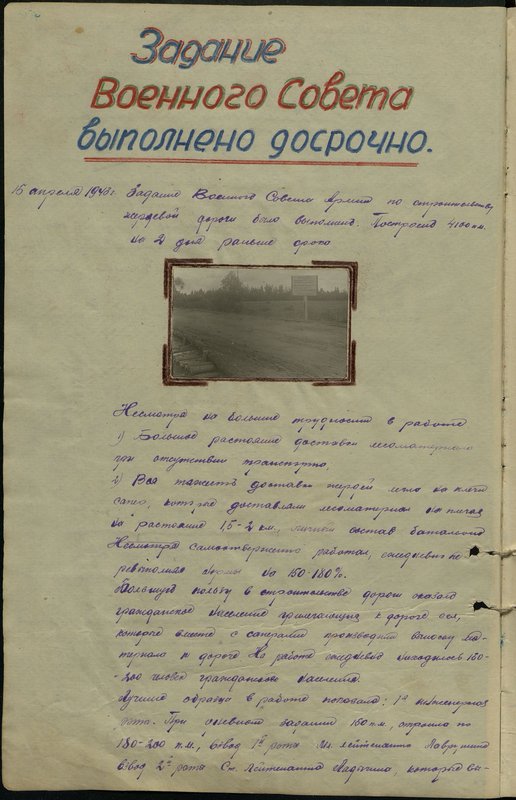 Задание
Военного Совета
выполнено досрочно.
15 апреля 1943 г. Задание Военного Совета Армии по строительству
жердевой дороги было выполнено. Построено 4100 п.м.
на 2 дня раньше срока
Несмотря на большие трудности в работе
1) Большое растояние доставки лесоматериала
при отсутствии транспорта.
2) Вся тяжесть доставки жердей легла на плечи
сапер, которые доставляли лесоматериал на плечах
на растояние 1,5-2 км., личный состав батальона
Несмотря самоотверженно работал, ежедневно пе-
ревыполняя нормы на 150-180%.
Большую пользу в строительстве дороги оказало
гражданское население прилегающих к дороге сел,
которое вместе с саперами производили выноску ма-
териала к дороге На работе ежедневно находилось 150-
-200 человек гражданского населения.
Лучшие образцы в работе показала: 1я инженерная
рота. При дневном задании 160 п.м., строила по
180-200 п.м., взвод 1й роты Мл. лейтенанта
взвод 2й роты Ст. Лейтенанта которые вы-